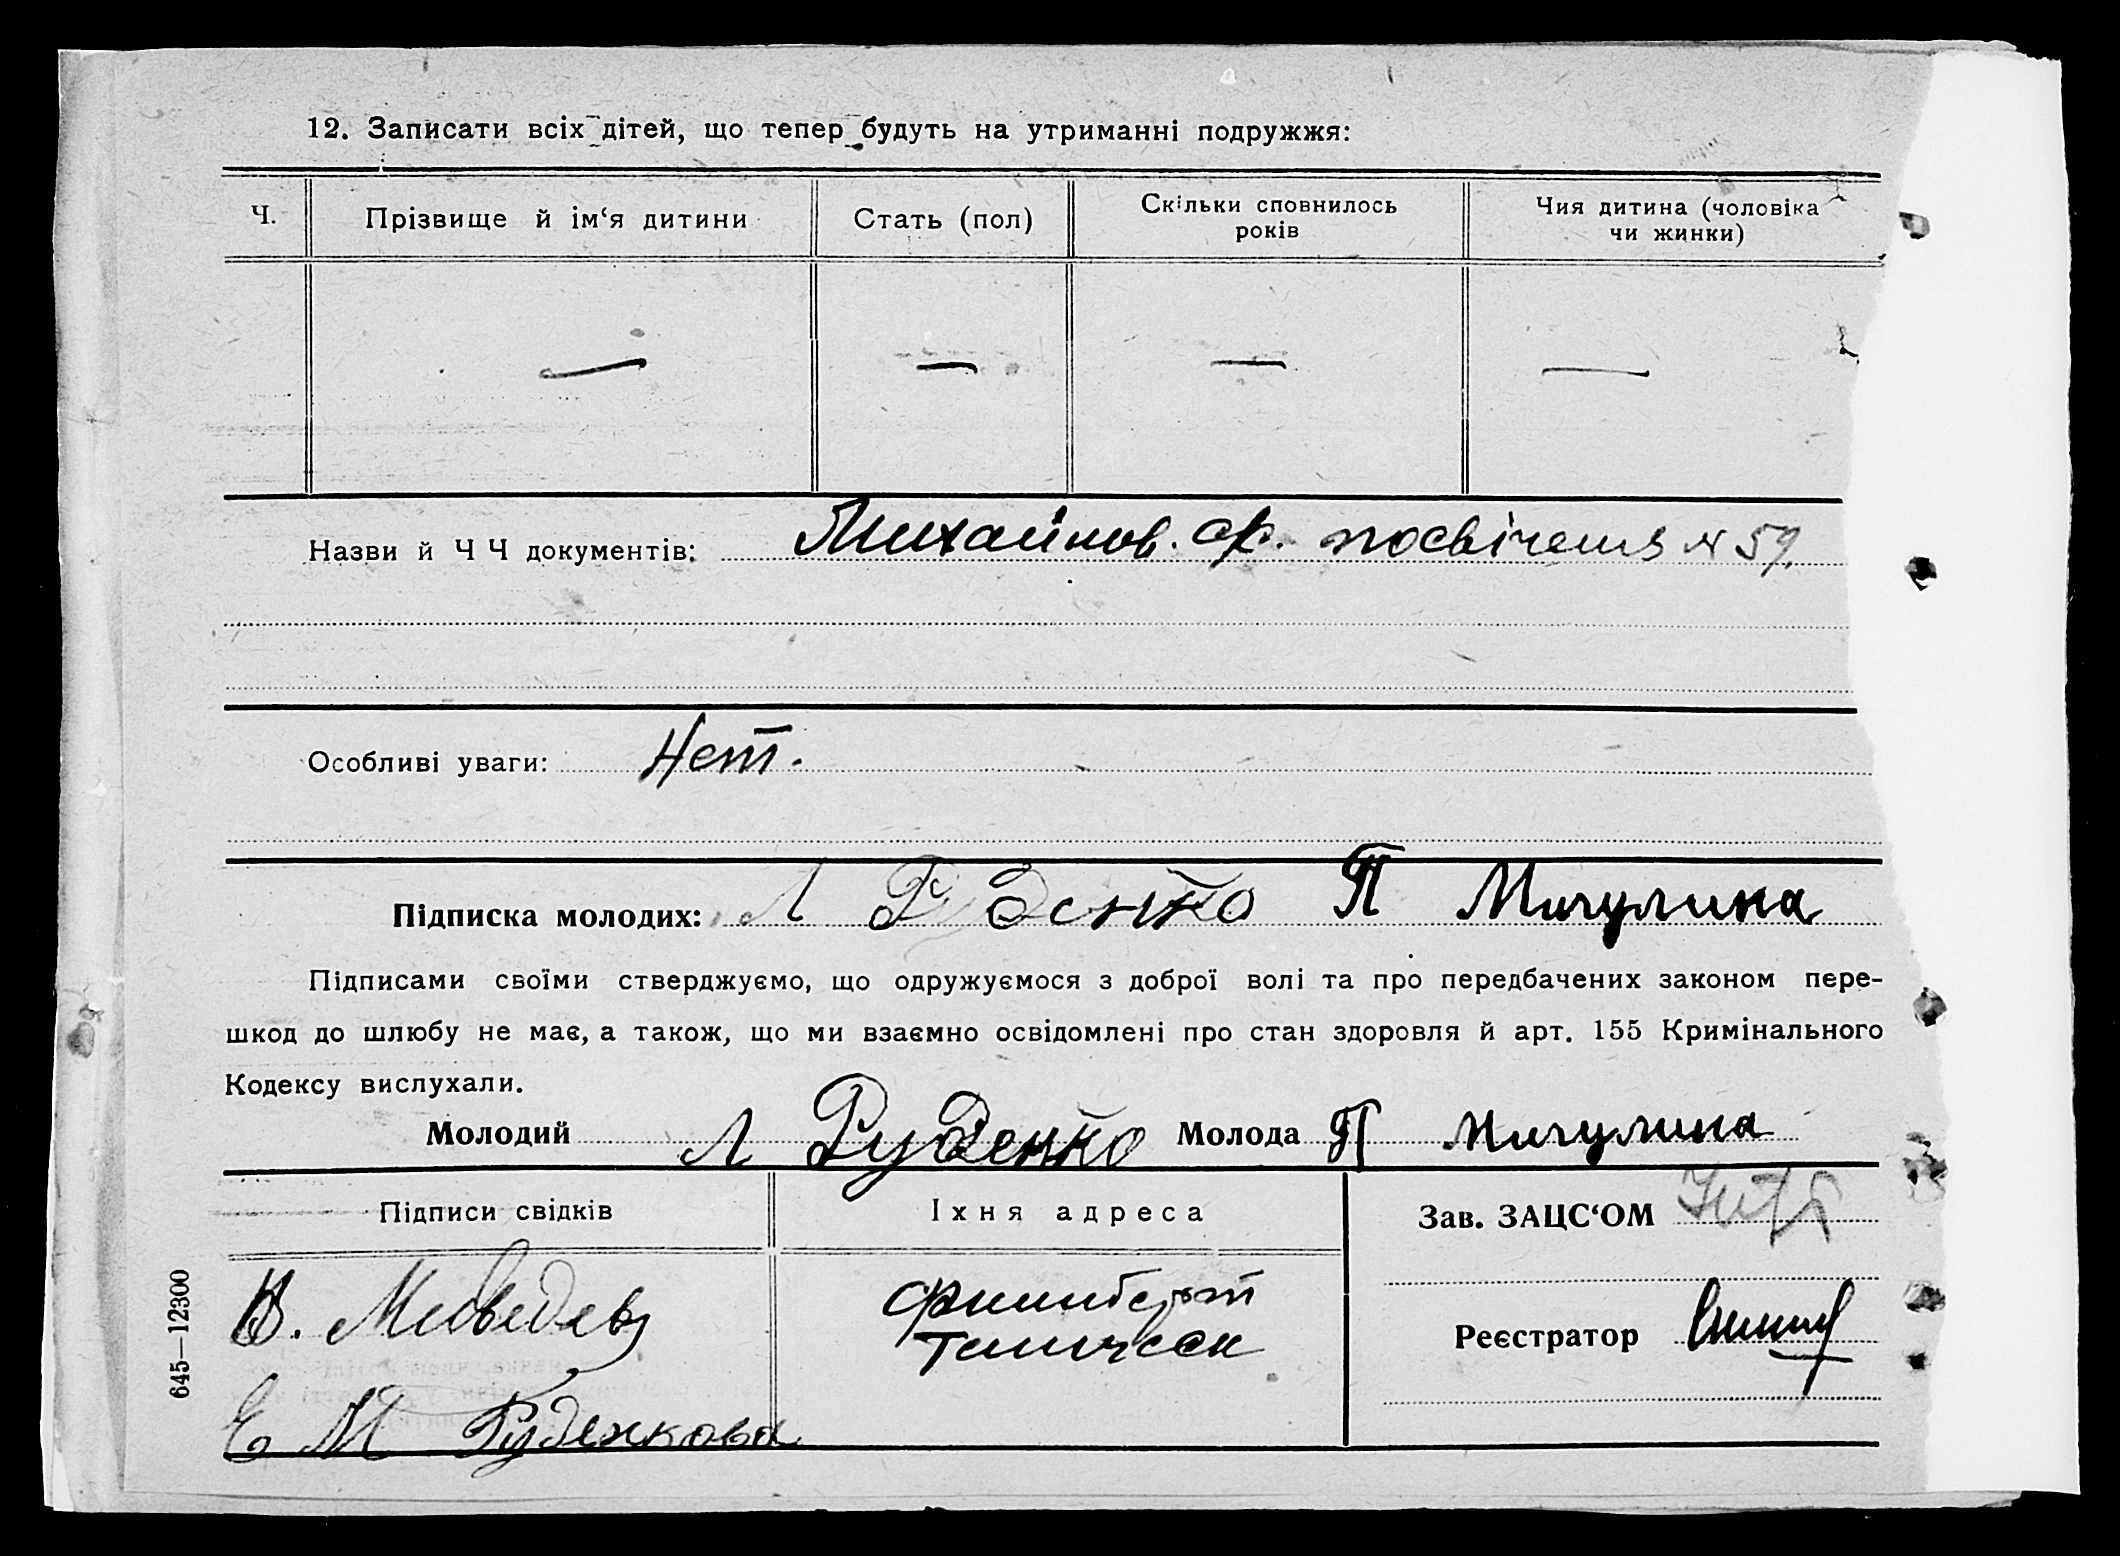 12. Записати всіх дітей, що тепер будуть на утриманні подружжя:
Ч.
Прізвище й ім‘я дитини
Стать (пол)
Скільки сповнилось
років
Чия дитина (чоловіка
чи жинки)
— — — —
Назви й Ч Ч документів: Михайлов. ср. посвічення № 59.
Особливі уваги: Нет.
Підписка молодих: Л Руденко П Мичулина
Підписами своїми стверджуємо, що одружуємося з доброї волі та про передбачених законом пере-
шкод до шлюбу не має, а також, що ми взаємно освідомлені про стан здоровля й арт. 155 Кримінального
Кодексу вислухали.
Молодий Л Руденко Молода П Мичулина
Підписи свідків
Іхня адреса
Зав. ЗАЦС‘ОМ
В. Медведев
Реєстратор
Е М Руденкова
645—12300